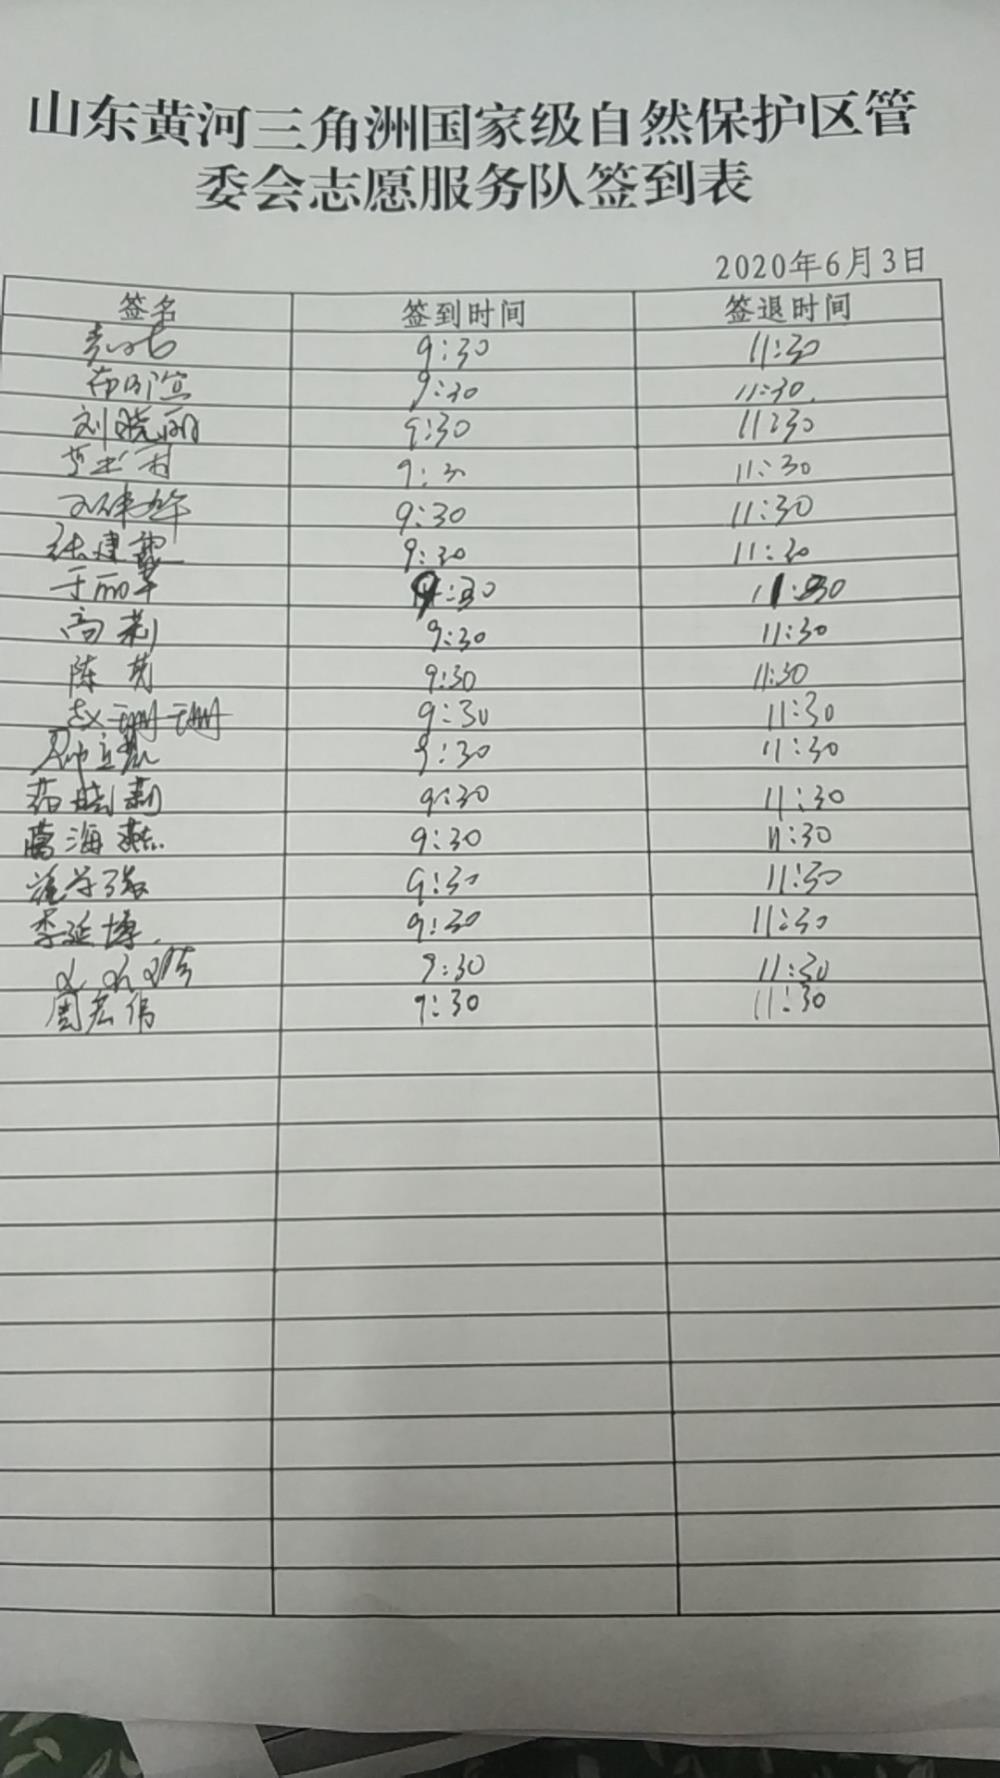 山东黄河三角洲国家级自然保护区管
委会志愿服务队签到表
2020年6月3日
签名 签到时间 签退时间
9:30 11:30
9:30 11:30
刘晓丽 9:30 11:30
9:30 11:30
9:30 11:30
张建 9:30 11:30
于丽 9:30 11:30
高莉 9:30 11:30
陈芳 9:30 11:30
赵珊珊 9:30 11:30
9:30 11:30
晓莉 9:30 11:30
葛海燕 9:30 11:30
9:30 11:30
李延博 9:30 11:30
9:30 11:30
周宏伟 9:30 11:30